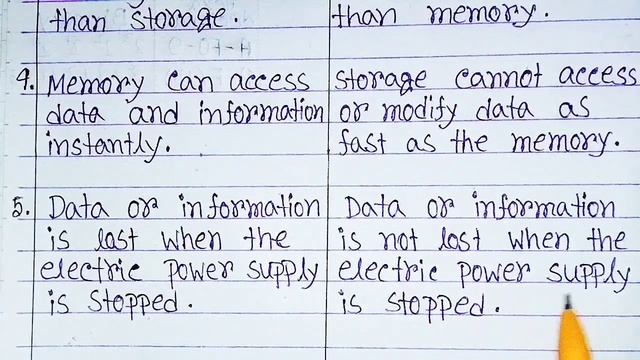 than storage.
than memory.
4. Memory can access
data and information
instantly.
storage cannot access
or modify data as
fast as the memory.
5. Data or information
is lost when the
electric power supply
is stopped.
Data or information
is not lost when the
electric power supply
is stopped.